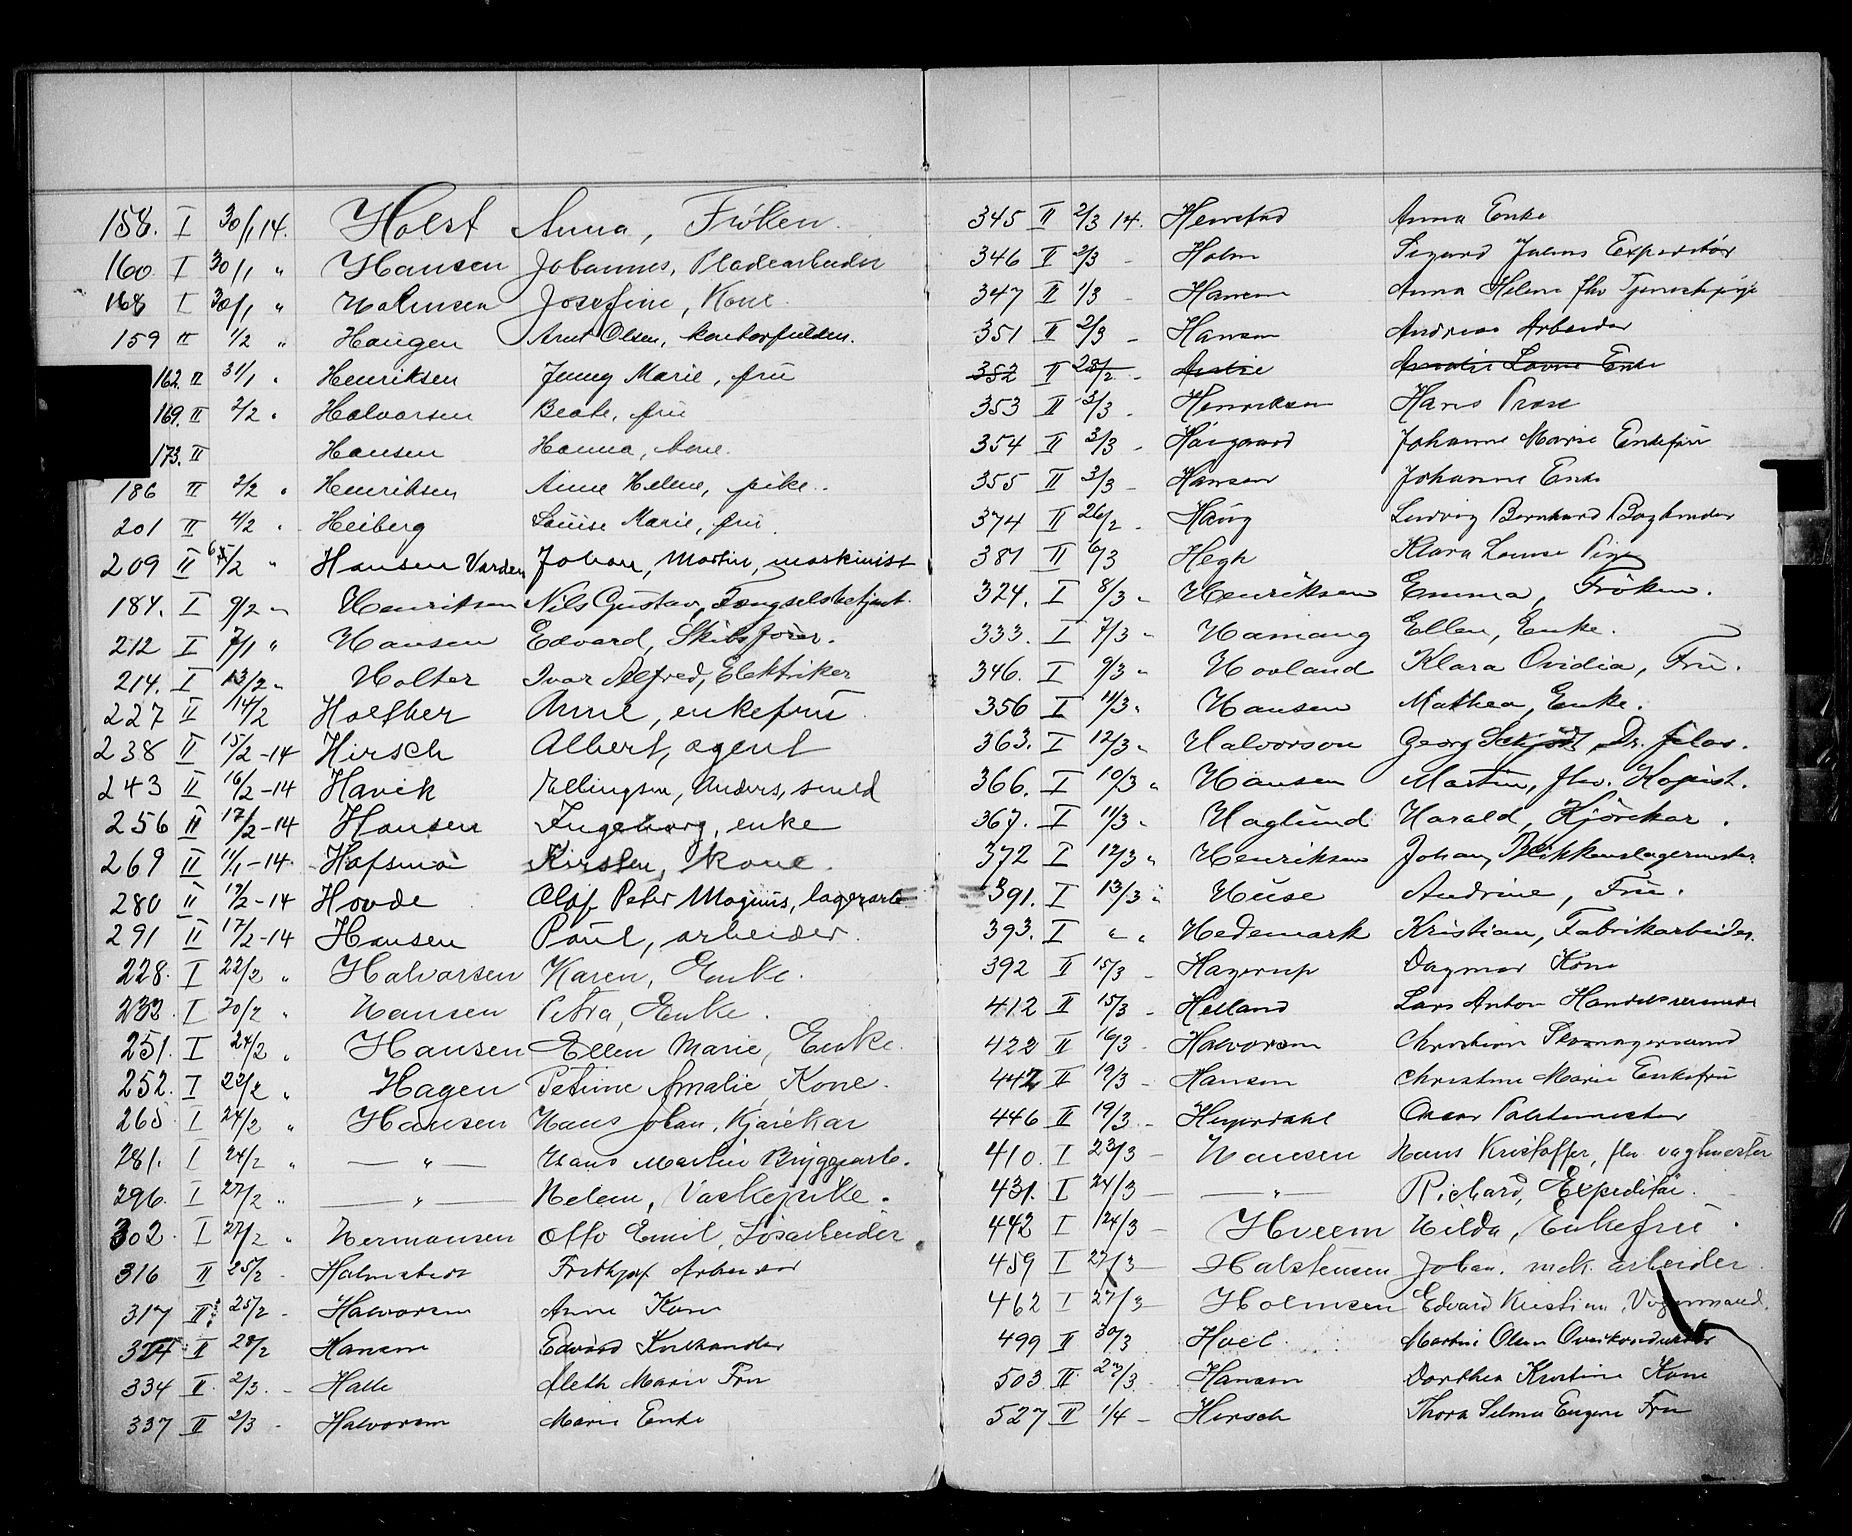 158. I 30/1 14. Holst Anna, Frøken.
160. I 30/1 " Hansen Johannes, Pladearbeider
168 I 30/1 " Holmsen Josefine, Kone.
159 II 1/2 " Haugen Arnt Olsen,
162. II 31/1 " Henriksen Jenny Marie, fru
169. II 2/2 " Halvorsen Beate, fru
173. II Hansen Hanna, kone.
186 II 2/2 " Henriksen Anne Helene, pike.
201 II 4/2 " Heiberg Louise Marie, fru
209 II 6/2 " Hansen Varden Johan, Martin, maskinist
184. I 9/2 " Henriksen Nils Gustav, Fængselsbetjent.
212 I 7/1 " Hansen Edvard, Skibsfører.
214. I 13/2 " Holter Ivar Alfred, Elektriker
227 II 14/2 Anne, enkefru
238 II 15/2 -14 Hirsch Albert, agent
243 II 16/2 -14 Havik Ellingsen, Anders, smed
256 II 17/2 -14 Hansen Ingeborg, enke
269 II 11/1 -14. Hofsmo Kirsten, kone.
280 II 17/2 -14 Hovde Olaf Peter Magnus, lagerarb
291 II 17/2 -14 Hansen Paul, arbeider.
228. I 22/2 " Halvorsen Karen, Enke.
233. I 20/2 " Hansen Petra, Enke.
251. I 24/2 " Hansen Ellen Marie, Enke.
252. I 22/2 " Hagen Petrine Amalie, Kone.
265 I 24/2 " Hansen Hans Johan, Kjørekar
281. I 24/2 " — " — Hans Martin Bryggearb.
296. I 27/2 " — " — Helene, Vaskepike.
302. I 27/2 " Hermansen Otto Emil, Løsarbeider
316 II 25/2 - Halmstedt Fridtjof Arbeider
317 II 25/2 - Halvorsen Anne Kone
II 28/2 Hansen Edvard
334 II 2/3. - Halle Aleth Marie Fru
337 II 2/3 - Halvorsen Marie Enke
345 II 2/3 14. Anna Enke
346 II 2/3 - Holm Sigurd Julius Expeditør
347 II 1/3 - Hansen Anna Helene fhv Tjenestepige
351 II 2/3 - Hansen Andreas Arbeider
352 II 28/2 - Enke
353 II 3/3 - Henriksen Hans
354 II 3/3 - Haugaard Johanne Marie Enkefru
355 II 3/3 - Hansen Johanne Enke
374 II 26/2 - Haug Ludvig Bernhard Bogbinder
381 II 6/3 Hegh Klara Louise Pige
324. I 8/3 " Henriksen Emma, Frøken.
333. I 7/3 " Hamang Ellen, Enke.
346. I 9/3 " Hovland Klara Ovidia, Fru.
356 I 11/3 " Hansen Mathea, Enke.
363. I 12/3 " Halvorson Georg Schjødt, Dr. filos.
366. I 10/3 " Hansen Martin, fhv. Kopist.
367. I 11/3 " Haglund Harald, Kjørekar.
372 I 12/3 " Henriksen Johan, Blikkenslagermester
391. I 13/3 " Huse Andrine, Fru.
393. I " " Hedemark Kristian, Fabrikarbeider.
392 II 15/3 - Hagerup Dagmar Kone
412 II 15/3 - Helland Lars Anton Handelsreisende
422 II 16/3 - Halvorsen Christian
442 II 19/3 - Hansen Christine Marie Enkefru
446 II 19/3 - Heyerdahl Oscar
410. I 23/3 — Hansen Hans Kristoffer, fhv. vagtmester
431. I 24/3 — — " — Richard, Expeditør.
442 I 24/3 — Hveem Hilda, Enkefru.
459 I 27/3 — Halstensen Johan, mek. arbeider.
462 I 27/3 — Holmsen Edvard Kristian, Vognmand.
499 II 30/3 Hoel Martin Olsen Overkonduktør
503. II 23/3 - Hansen Dorthea Kristine Kone
527 II 1/4 - Hirsch Thora Selma Eugenie Fru